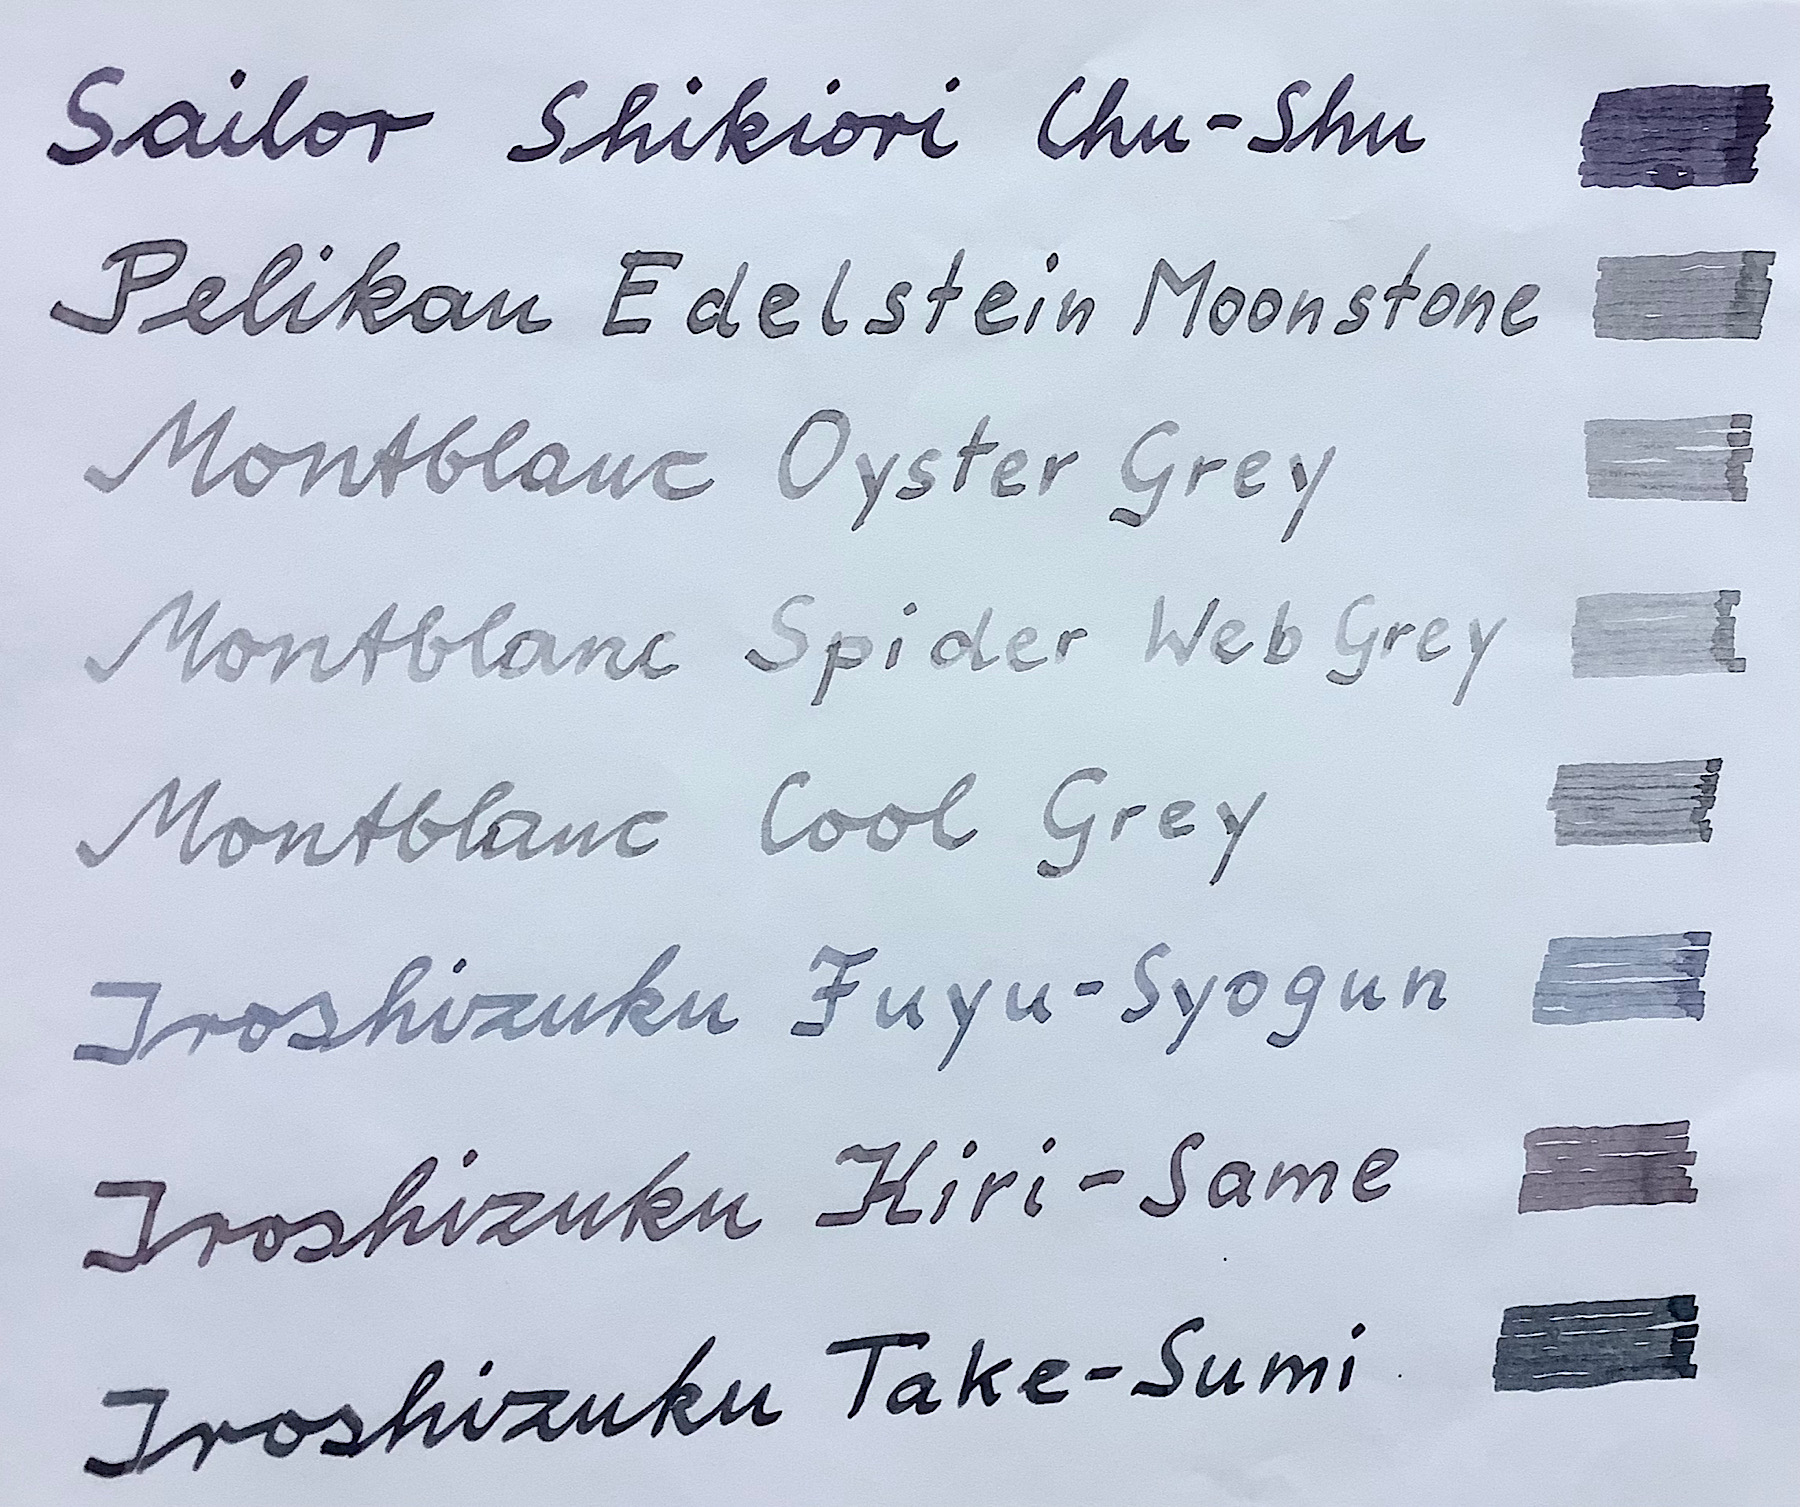 Sailor Shikiori Chu-Shu
Pelikan Edelstein Moonstone
Montblanc Oyster Grey
Montblanc Spider Web Grey
Montblanc Cool Grey
Iroshizuku Fuyu-Syogun
Iroshizuku Kiri-Same
Iroshizuku Take-Sumi